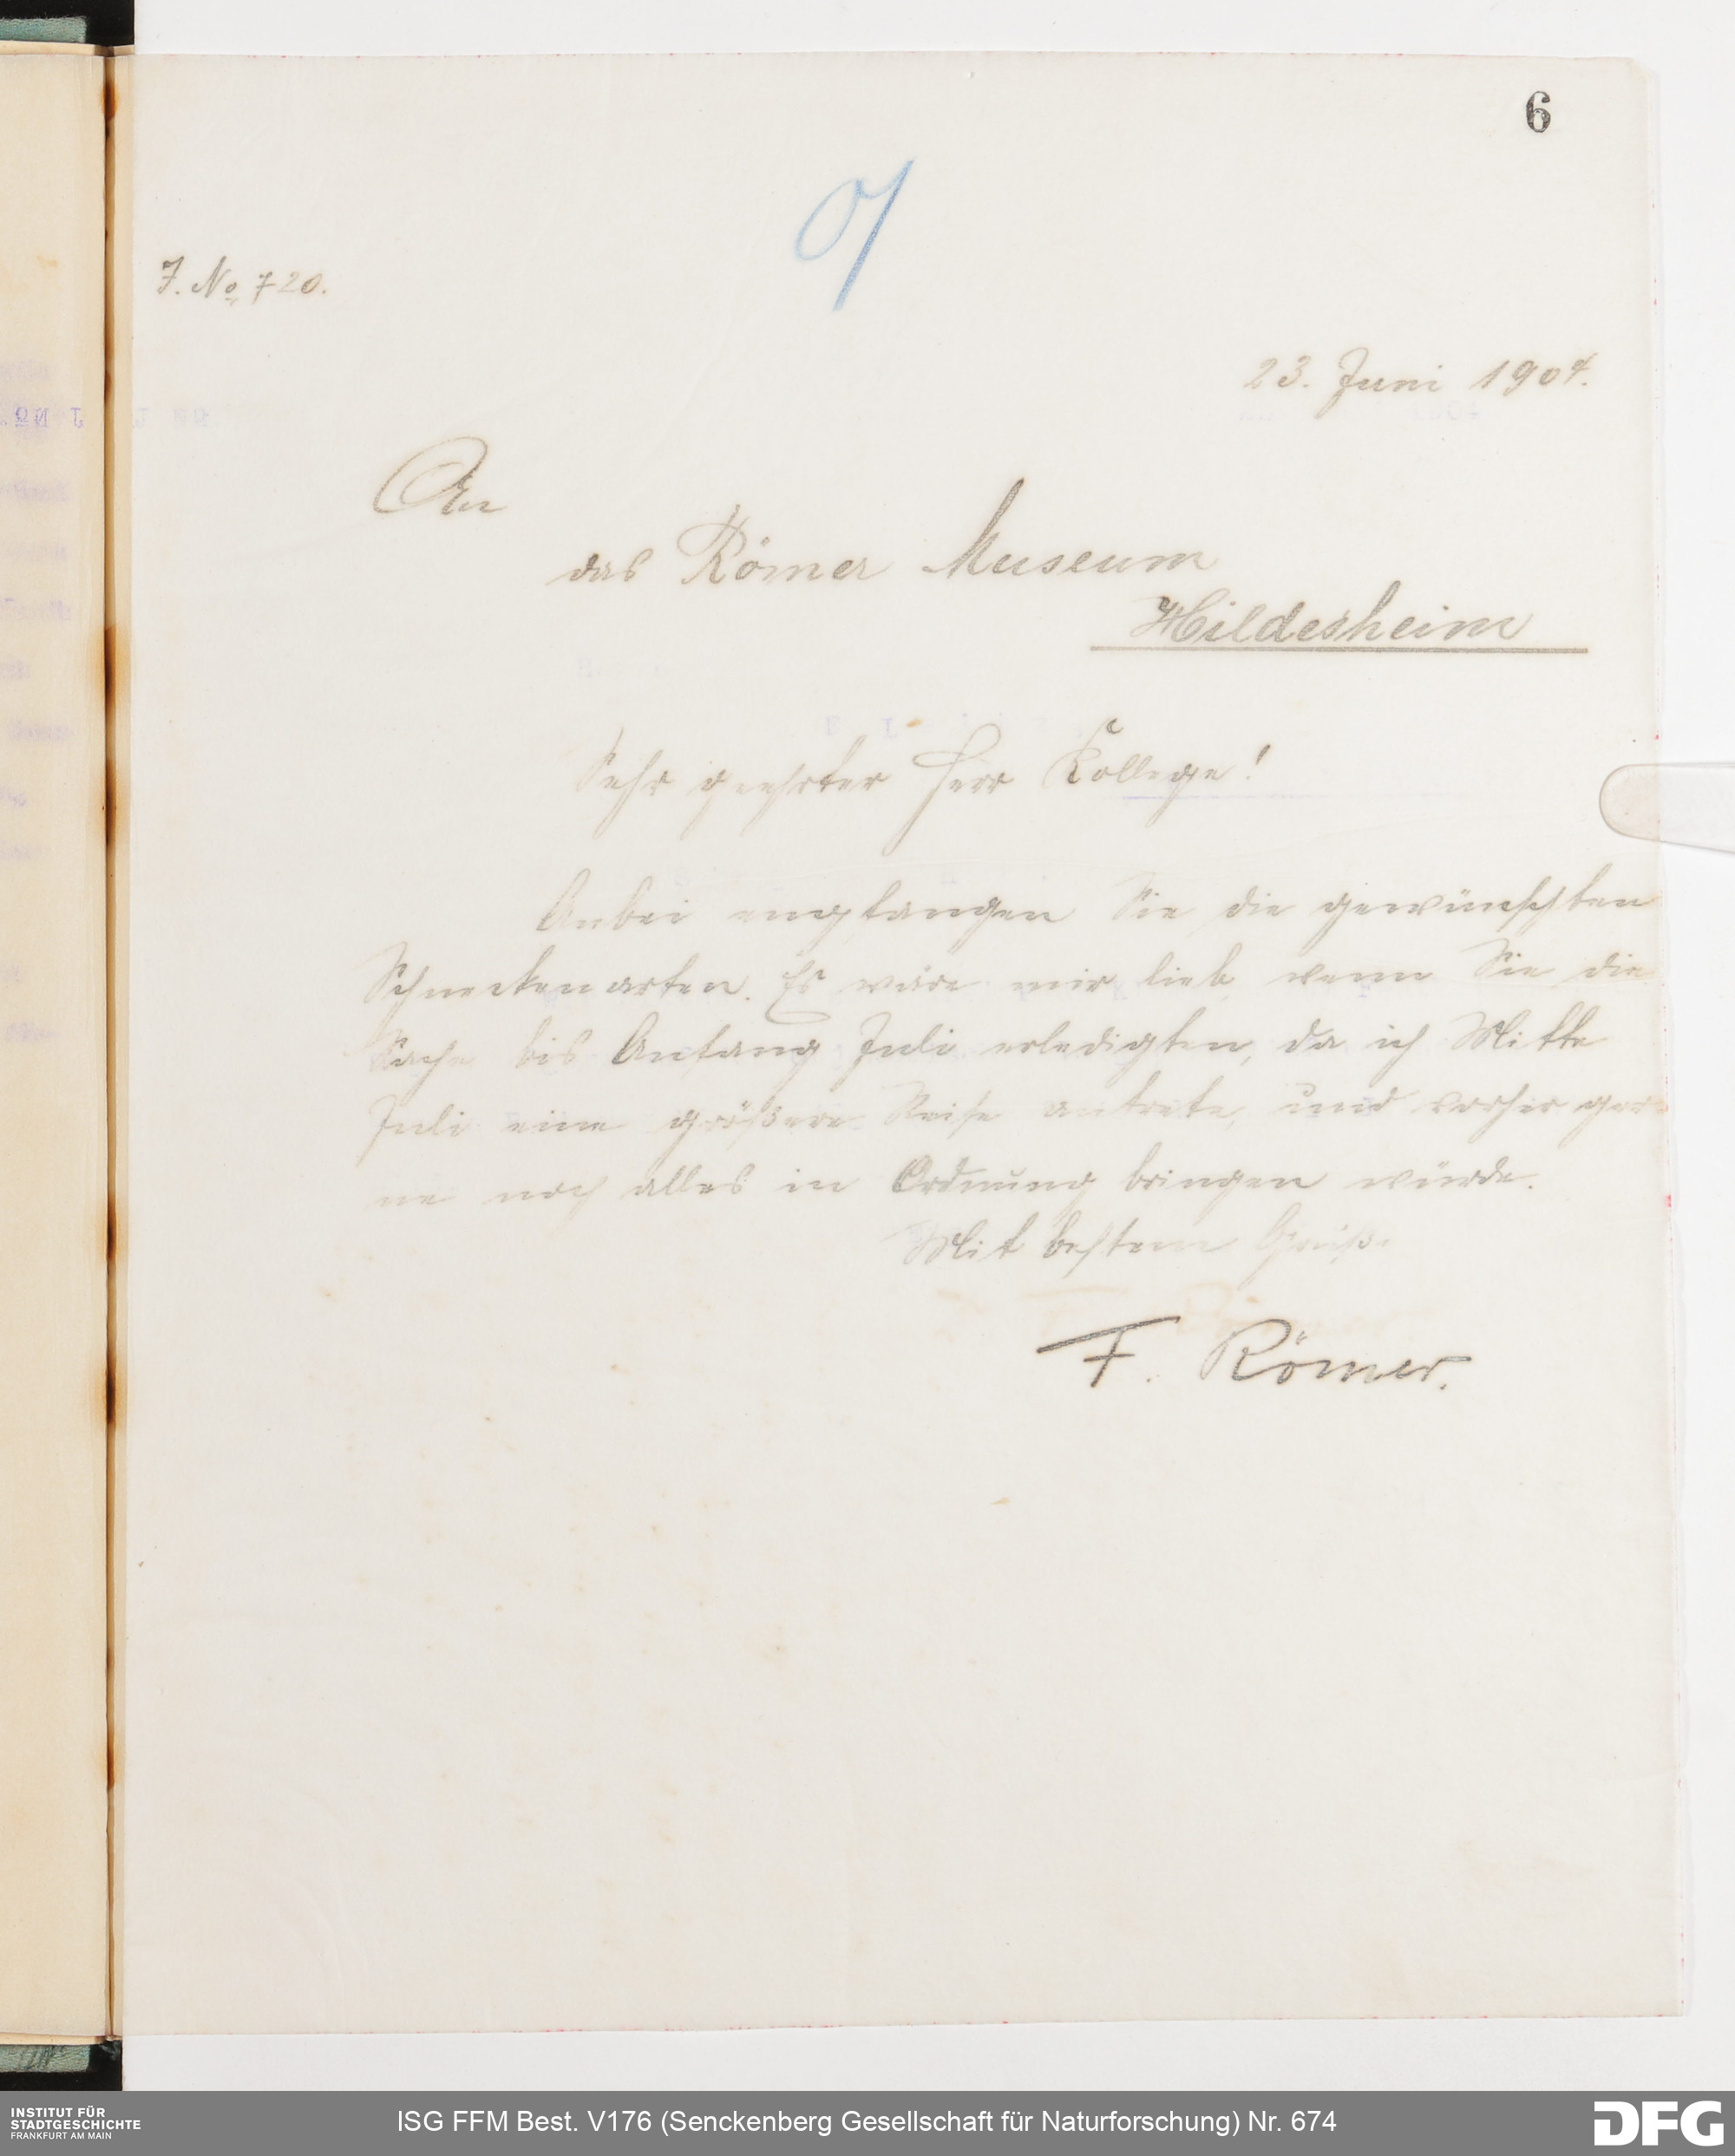 6
J. No 720.
23. Juni 1904.
An
das Römer Museum
Hildesheim
Sehr geehrter Herr Kollege!
Anbei empfangen Sie die gewünschten
Schneckenarten. Es wäre mir lieb, wenn Sie die
Sache bis Anfang Juli erledigten, da ich Mitte
Juli eine größere Reise antrete, und vorher ger-
ne noch alles in Ordnung bringen würde.
Mit bestem Gruß
F. Römer.
INSTITUT FÜR
STADTGESCHICHTE
FRANKFURT AM MAIN
ISG FFM Best. V176 (Senckenberg Gesellschaft für Naturforschung) Nr. 674
DFG